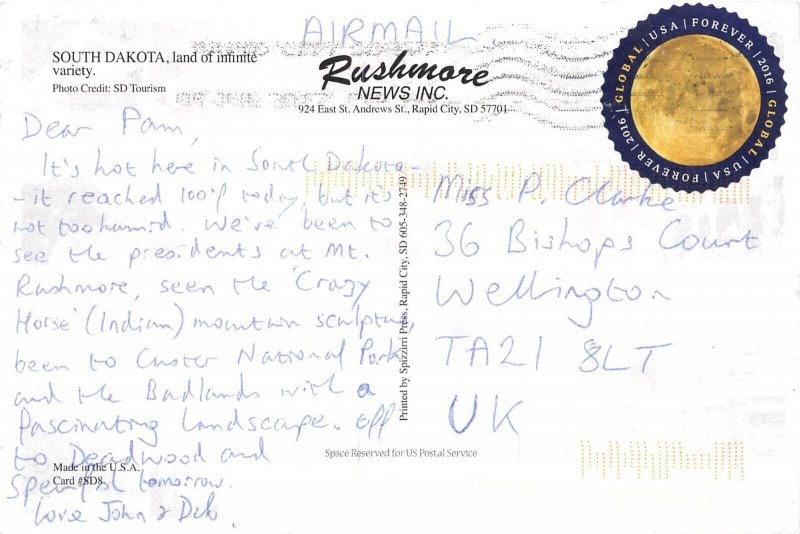 AIRMAIL
SOUTH DAKOTA, land of infinite
variety.
Photo Credit: SD Tourism
Rushmore
NEWS INC.
924 East St. Andrews St., Rapid City, SD 57701
GLOBAL | USA | FOREVER | 2016 | GLOBAL | USA | FOREVER | 2016 |
Dear Pam,
It's hot here in South Dakota -
- it reached 100°f today, but it's
not too humid. We've been to
see the presidents at Mt.
Rushmore, seen the 'Crazy
Horse' (Indian) mountain sculpture,
been to Custer National Park
and the Badlands with a
fascinating landscape. Off
to Deadwood and
Spearfish tomorrow.
Love John &
Printed by Spizzirri Press, Rapid City, SD 605-348-2749
Miss P. Clarke
36 Bishops Court
Wellington
TA21 8LT
UK
Space Reserved for US Postal Service
Made in the U.S.A.
Card #SD8